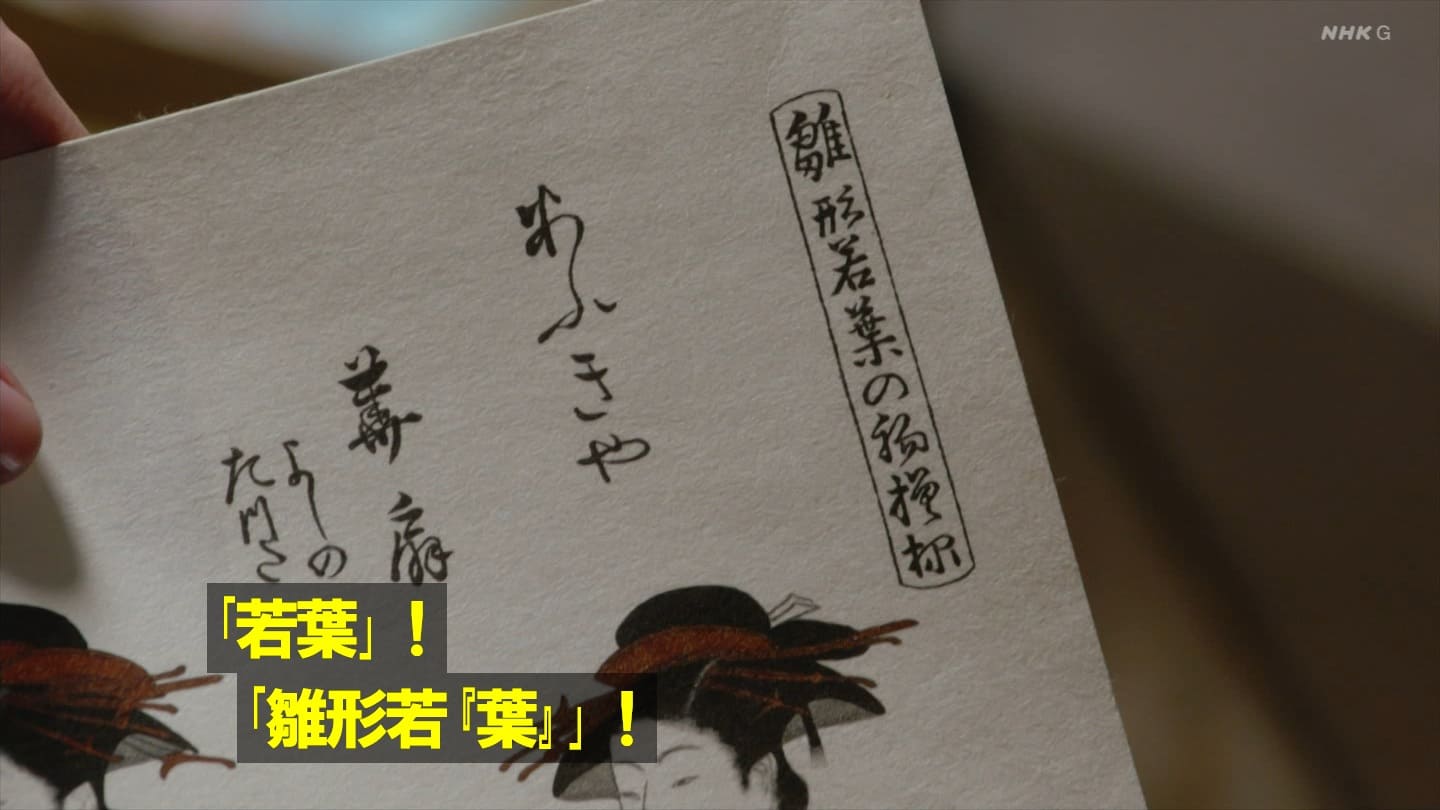 NHK G
雛形若葉の初模様
あふきや
華扇
よしの
たつた
「若葉」！
「雛形若『葉』」！